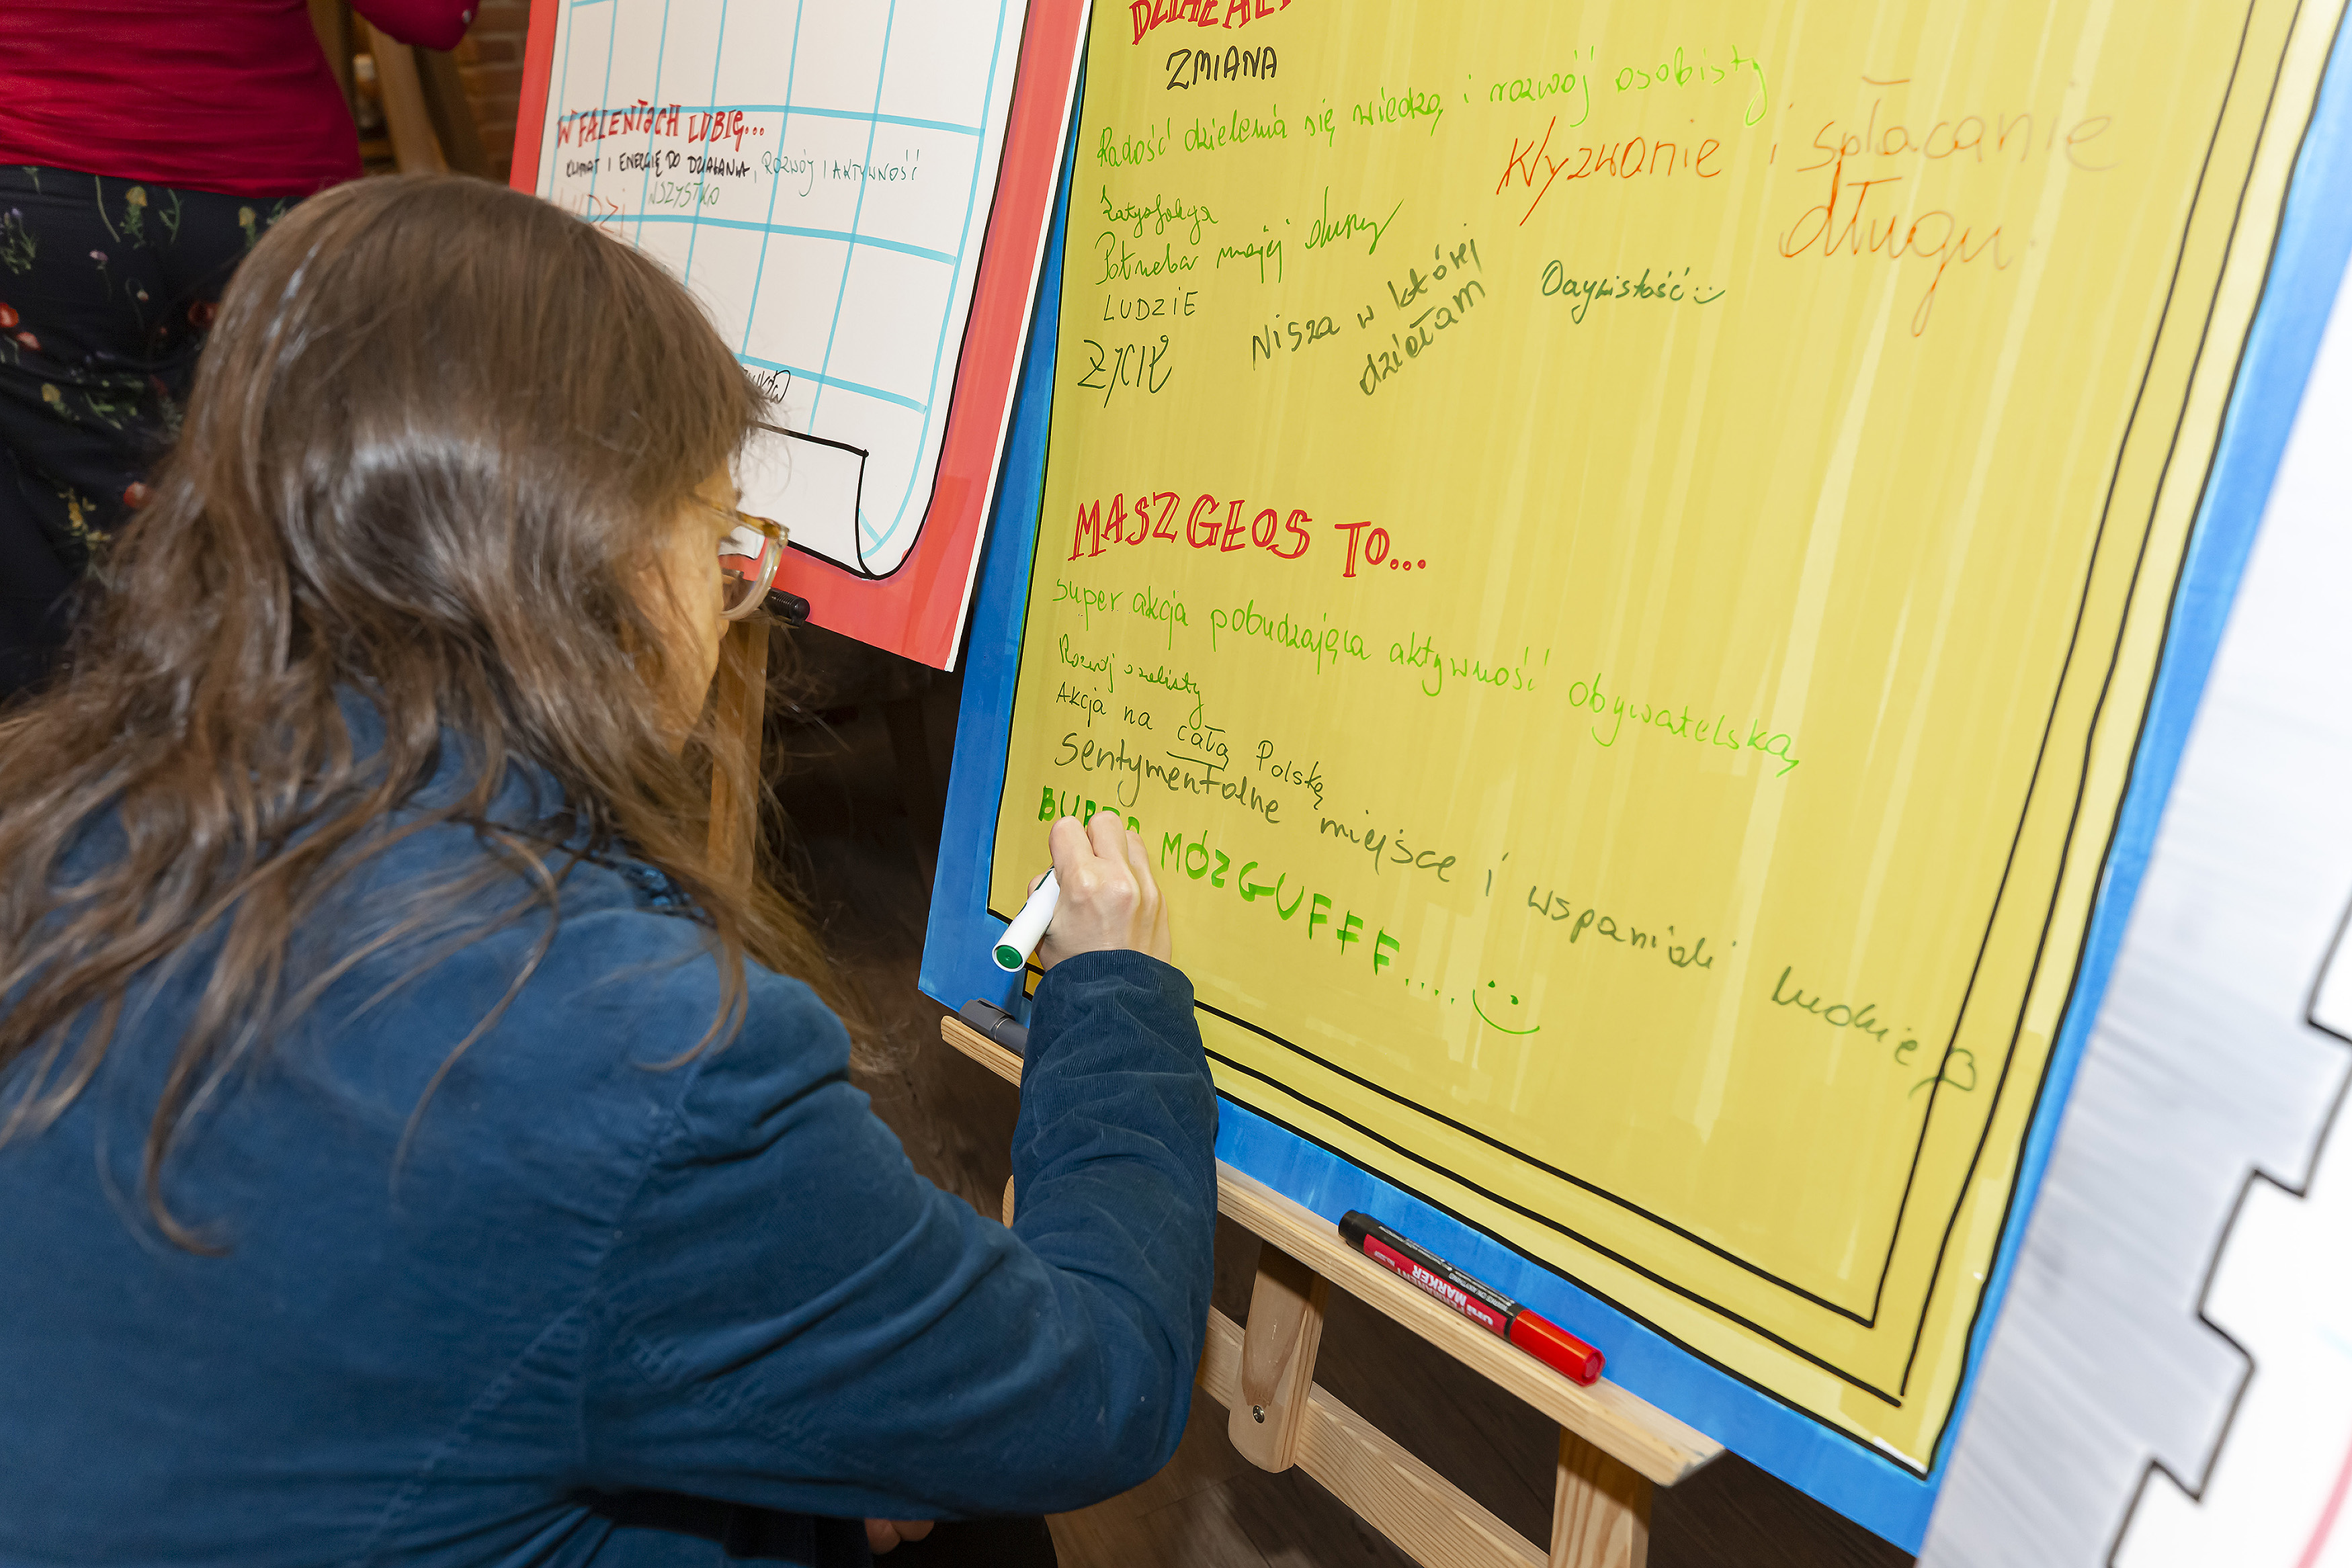 W FALENTACH LUBIĘ...
KLIMAT I ENERGIĘ DO DZIAŁANIA, ROZWÓJ I AKTYWNOŚĆ
LUDZI WSZYSTKO
ZMIANA
Radość dzielenia się wiedzą i rozwój osobisty
Wyzwanie i spłacanie długu
Satysfakcja
Potrzeba mojej duszy
LUDZIE
ŻYCIE
Nisza w której działam
Oczywistość
MASZ GŁOS TO...
super akcja pobudzająca aktywność obywatelską
Rozwój osobisty
Akcja na całą Polskę
Sentymentalne miejsce i wspaniali ludzie
BURZA MÓZGUFFF....
MARKER